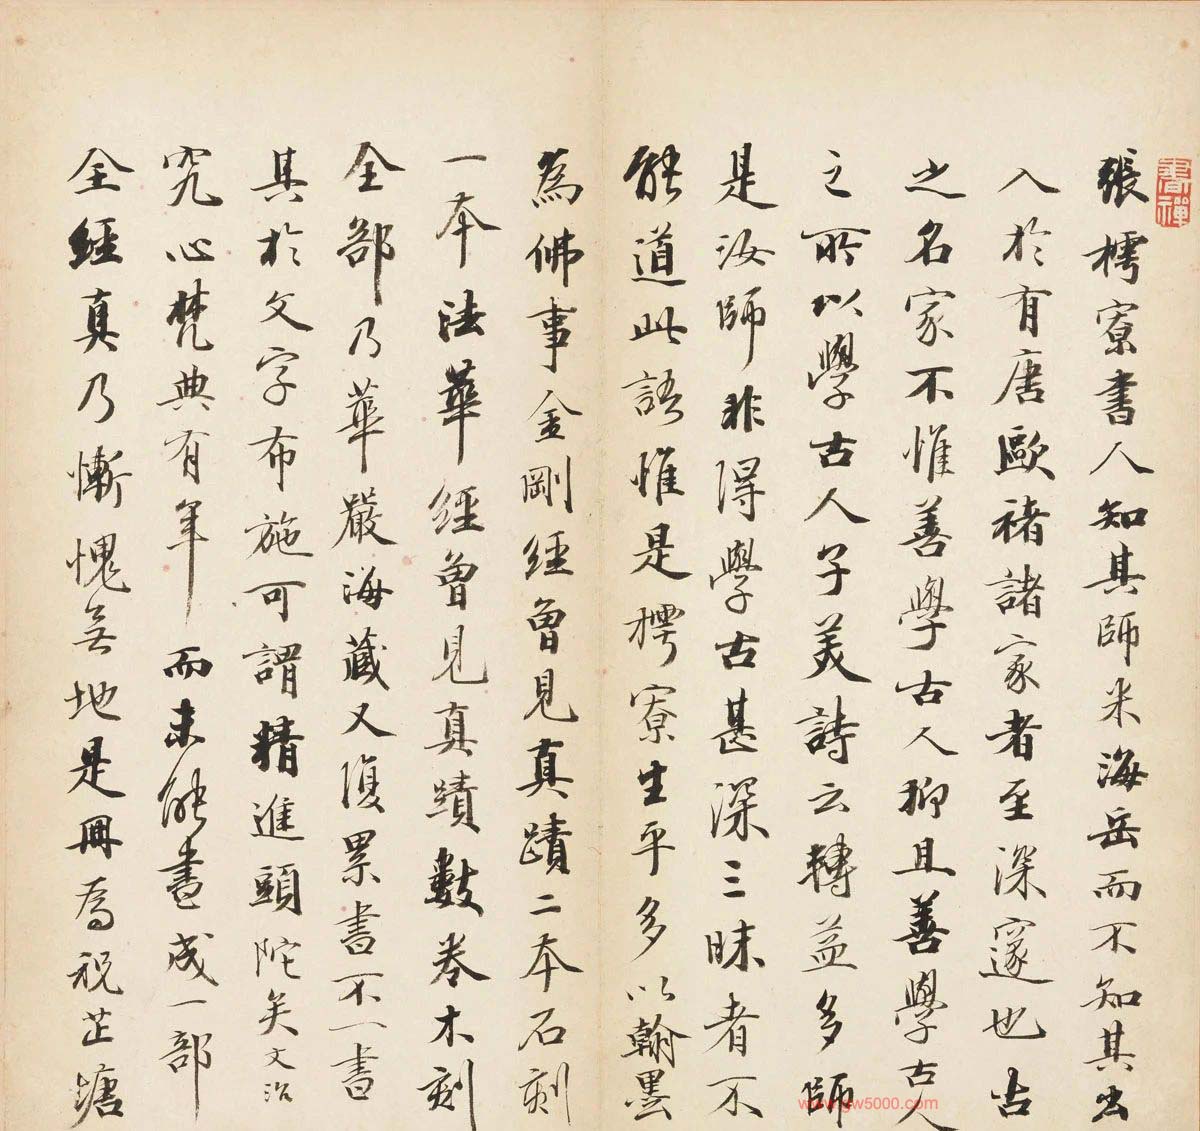 書禪
張樗寮書人知其師米海岳而不知其出
入於有唐歐褚諸家者至深邃也古
之名家不惟善學古人抑且善學古人
之所以學古人子美詩云轉益多師
是汝師非得學古甚深三昧者不
能道此語惟是樗寮生平多以翰墨
為佛事金剛經曾見真蹟二本石刻
一本法華經曾見真蹟數卷木刻
全部乃華嚴海藏又復累書不一書
其於文字布施可謂精進頭陀矣文治
究心梵典有年而未能書成一部
全經真乃慚愧無地是冊為祝芷塘
www.gw5000.com